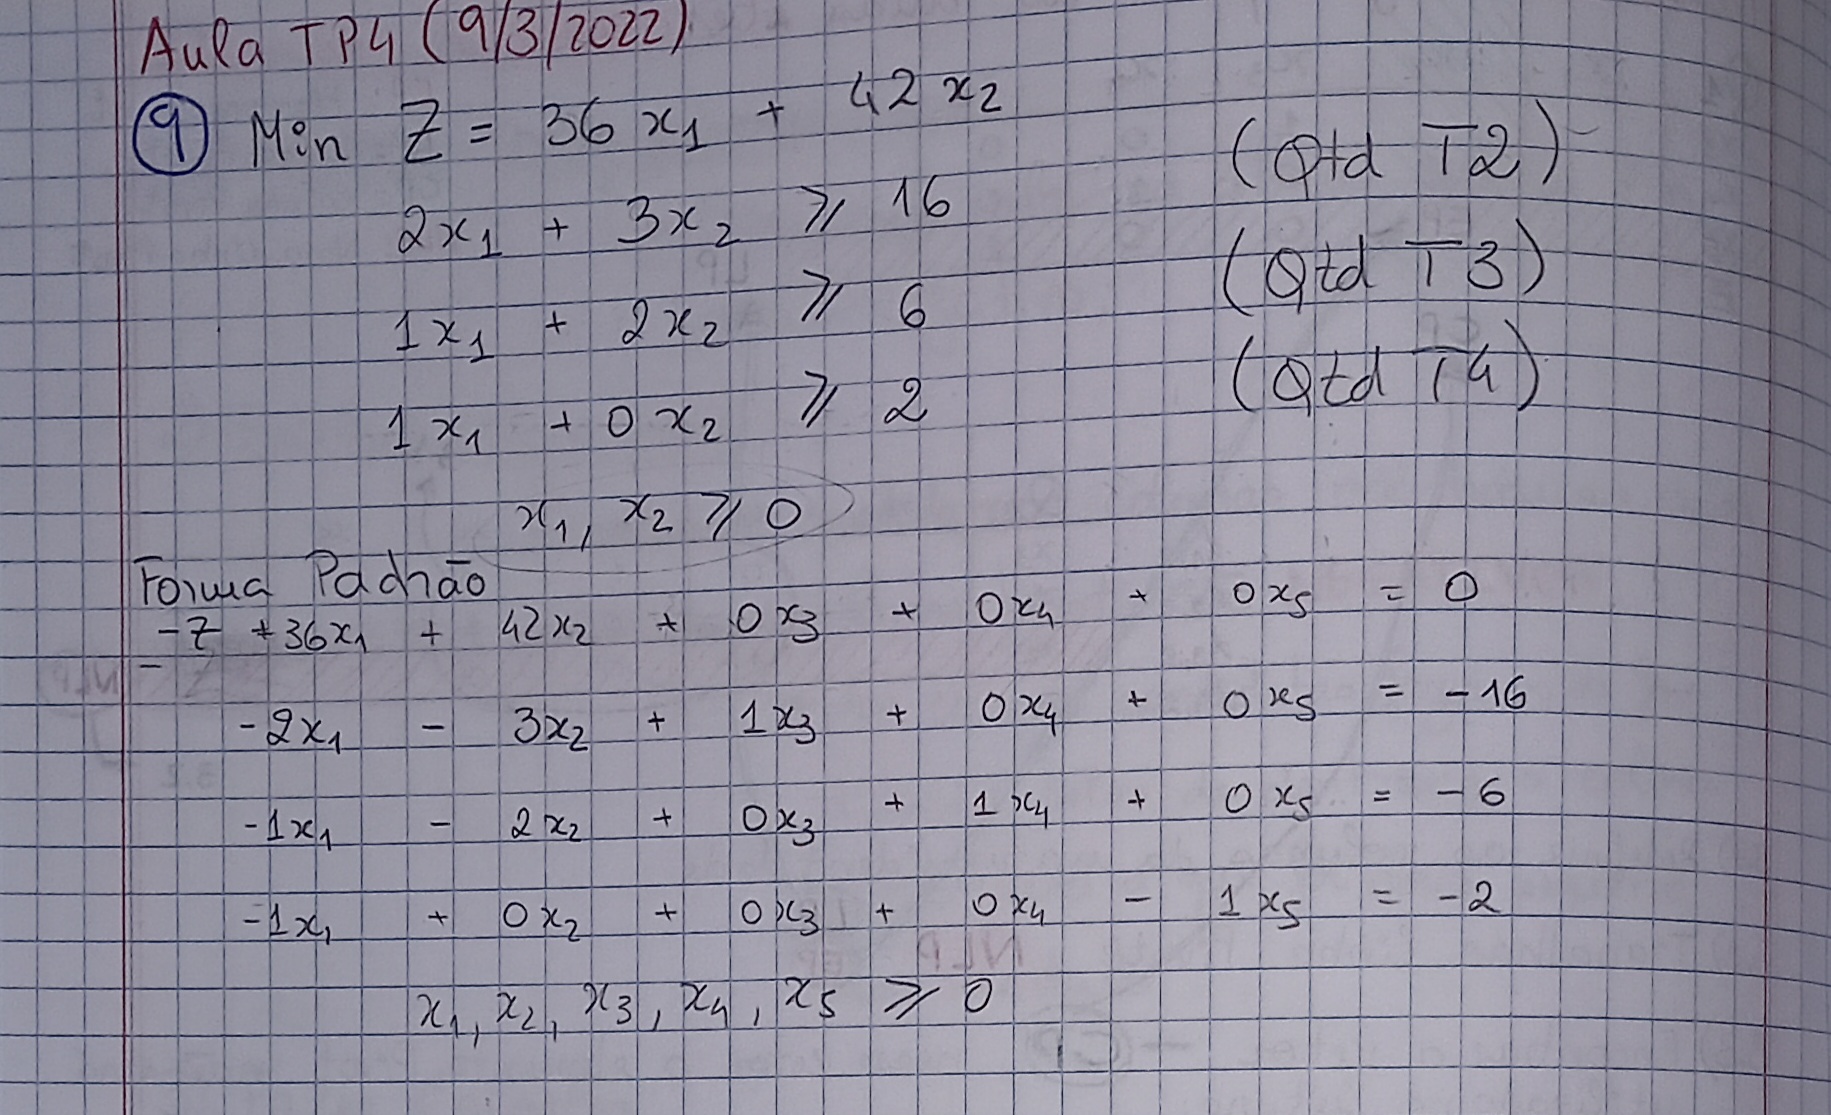 Aula TP4 (9/3/2022)
9 Min Z = 36x1 + 42x2
2x1 + 3x2 ⩾ 16 (Qtd T2)
1x1 + 2x2 ⩾ 6 (Qtd T3)
1x1 + 0x2 ⩾ 2 (Qtd T4)
x1, x2 ⩾ 0
Forma Padrão
-Z + 36x1 + 42x2 + 0x3 + 0x4 + 0x5 = 0
-2x1 - 3x2 + 1x3 + 0x4 + 0x5 = -16
-1x1 - 2x2 + 0x3 + 1x4 + 0x5 = -6
-1x1 + 0x2 + 0x3 + 0x4 - 1x5 = -2
x1, x2, x3, x4, x5 ⩾ 0